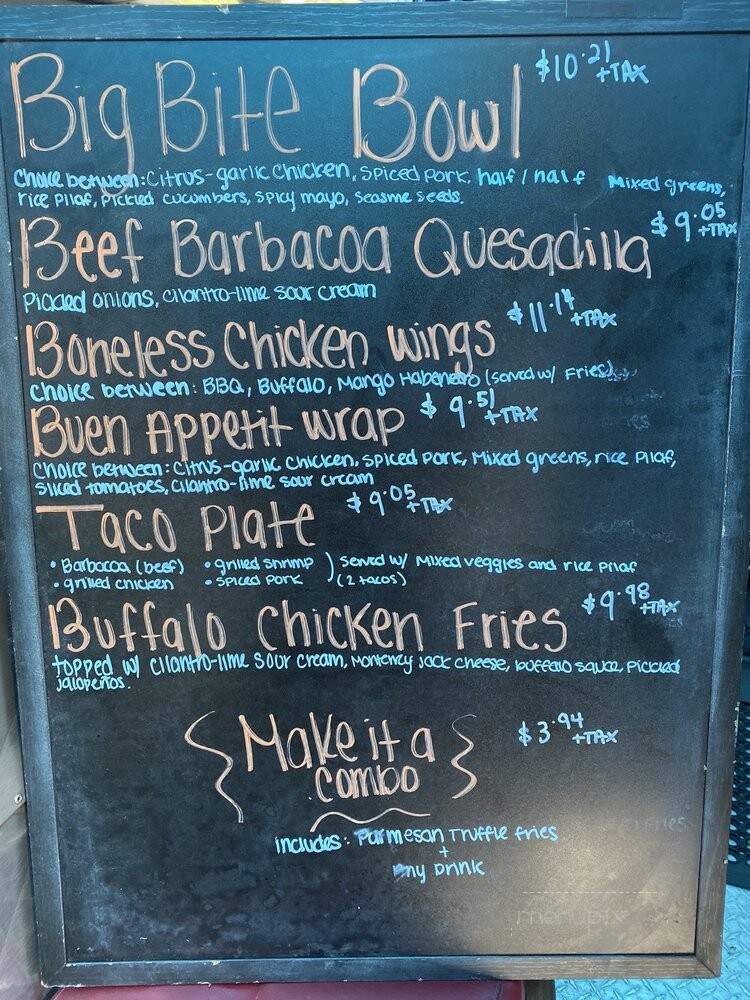 Big Bite Bowl $10.21 +TAX
Choice between: Citrus-garlic chicken, spiced pork, half / half Mixed greens,
rice pilaf, pickled cucumbers, spicy mayo, seasme seeds.
Beef Barbacoa Quesadilla $9.05 +TAX
Pickled onions, cilantro-lime sour cream
Boneless Chicken Wings $11.14 +TAX
Choice between: BBQ, Buffalo, Mango Habenero (served w/ Fries)
Buen Appetit wrap $9.51 +TAX
Choice between: Citrus-garlic chicken, spiced pork, Mixed greens, rice pilaf,
sliced tomatoes, cilantro-lime sour cream
Taco Plate $9.05 +TAX
• Barbacoa (beef) • grilled shrimp ) served w/ Mixed veggies and rice pilaf
• grilled chicken • spiced pork (2 tacos)
Buffalo Chicken Fries $9.98 +TAX
topped w/ cilantro-lime sour cream, Monterey Jack cheese, buffalo sauce, pickled
jalapeños.
{ Make it a } $3.94 +TAX
combo
includes: Parmesan Truffle fries
+
Any Drink
menupix